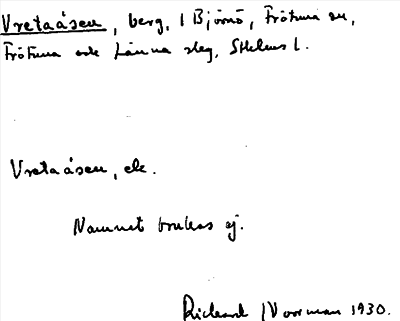 Vretaåsen, berg, i Björnö, Frötuna sn,
Frötuna och Länna slg, Sthlms l.
Vretaåsen, ek.
Namnet brukas ej.
Rickard Norrman 1930.